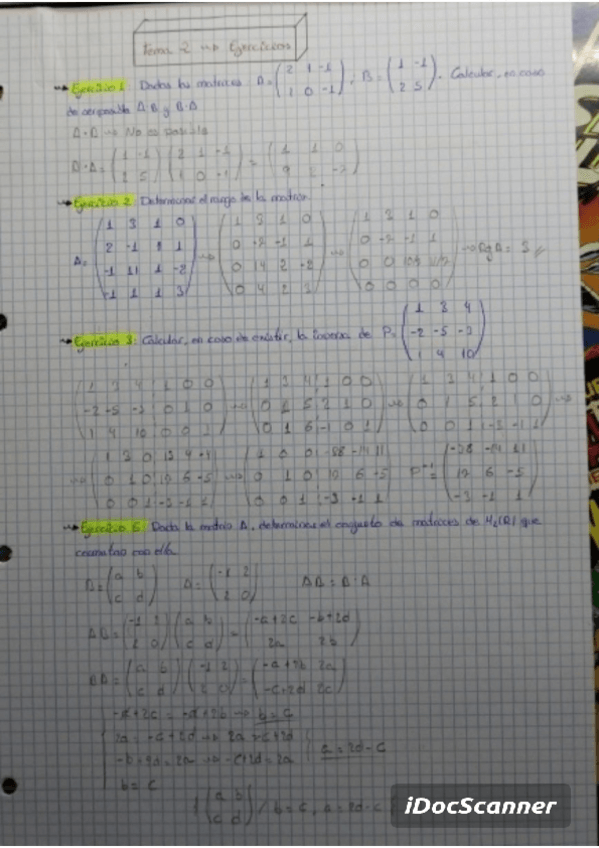 Tema 2 → Ejercicios
→ Ejercicio 1: Dadas las matrices A = (2 1 -1 / 1 0 -1), B = (1 -1 / 2 5). Calcular, en caso
de ser posible A·B y B·A
A·B → No es posible
B·A = (1 -1 / 2 5) (2 1 -1 / 1 0 -1) = (1 1 0 / 9 2 -7)
→ Ejercicio 2: Determinar el rango de la matriz
A = (1 3 1 0 / 2 -1 1 1 / -1 11 1 -2 / -1 1 1 3) → (1 3 1 0 / 0 -1 1 / 0 14 2 -2 / 0 4 2 3) → (1 3 1 0 / 0 -1 1 / 0 0 / 0 0 0 0) → Rg A = 3
→ Ejercicio 3: Calcular, en caso de existir, la inversa de P = (1 3 4 / -2 -5 -3 / 1 4 10)
(1 3 4 1 0 0 / -2 -5 -3 0 1 0 / 1 4 10 0 0 1) → (1 3 4 1 0 0 / 0 1 5 2 1 0 / 0 1 6 -1 0 1) → (1 3 4 1 0 0 / 0 1 5 2 1 0 / 0 0 1 -3 -1 1) →
→ (1 3 0 13 4 -4 / 0 1 0 17 6 -5 / 0 0 1 -3 -1 1) → (1 0 0 -38 -14 11 / 0 1 0 6 -5 / 0 0 1 -3 -1 1) P⁻¹ = (-38 -14 11 / 17 6 -5 / -3 -1 1)
→ Ejercicio 5: Dada la matriz A, determinar el conjunto de matrices de M₂(R) que
conmutan con ella.
B = (a b / c d) A = (-1 2 / 2 0) AB = B·A
AB = (-1 2 / 2 0) (a b / c d) = (-a+2c -b+2d / 2a 2b)
BA = (a b / c d) (-1 2 / 2 0) = (-a+2b 2a / -c+2d 2c)
-a+2c = -a+2b → b = c
2a = -c+2d → 2a = -c+2d
-b+2d = 2a → -c+2d = 2a
a = 2d-c
b = c
{(a b / c d) / b = c, a = 2d-c
iDocScanner